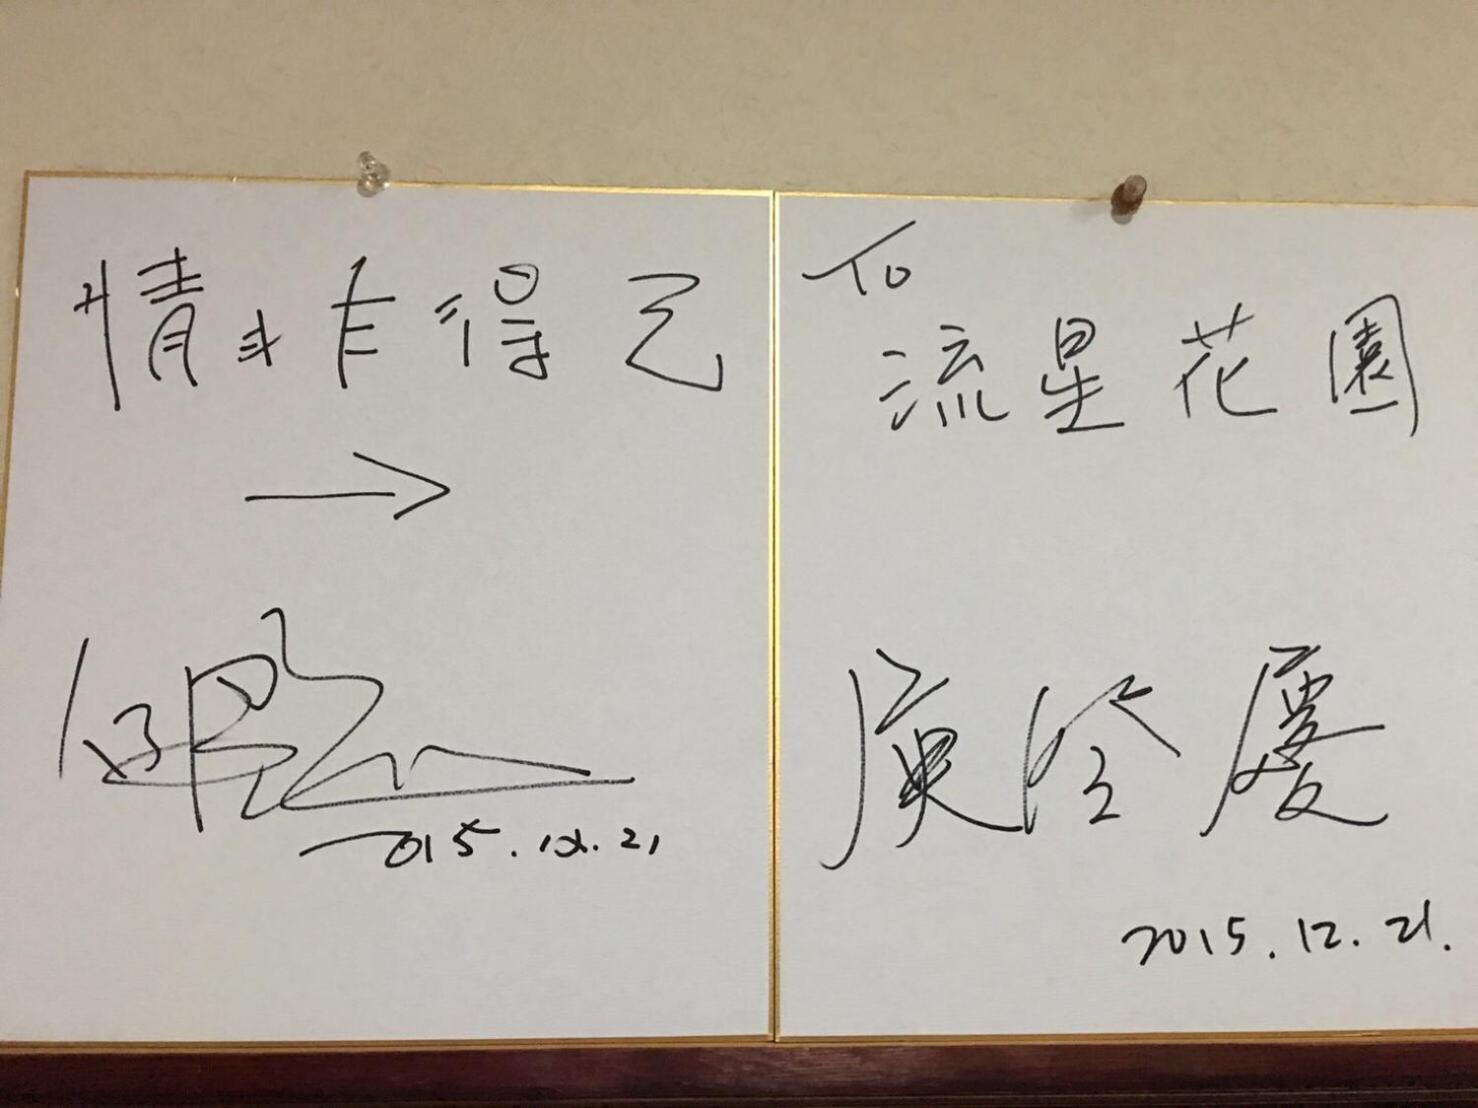 情非得已
→
2015.12.21
To
流星花園
庾澄慶
2015.12.21.